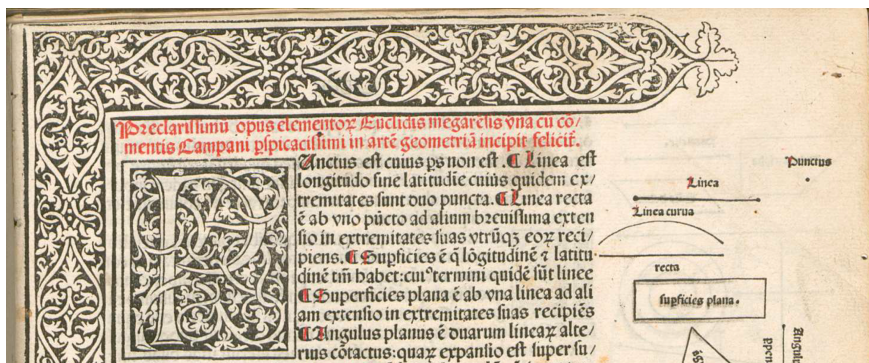 Preclarissimũ opus elementoꝝ Euclidis megarẽsis vna cũ cõ/
mentis Campani ꝑspicacissimi in artẽ geometriã incipit felicit̃.
PUnctus est cuius ps̃ non est. ¶ Linea est
longitudo sine latitudĩe cuius quidem ex/
tremitates sunt duo puncta. ¶ Linea recta
ẽ ab vno pũcto ad alium breuissima exten
sio in extremitates suas vtrũqꝫ eoꝝ reci/
piens. ¶ Suꝑficies ẽ q̃ lõgitudinẽ ⁊ latitu
dinẽ tm̃ habet: cuiꝰ termini quidẽ sũt linee
¶ Superficies plana ẽ ab vna linea ad ali
am extensio in extremitates suas recipiẽs
¶ Angulus planus ẽ duarum lineaꝝ alte/
rius cõtactus: quaꝝ expansio est super su/
Punctus
Linea
Linea curua
recta
suꝑficies plana.